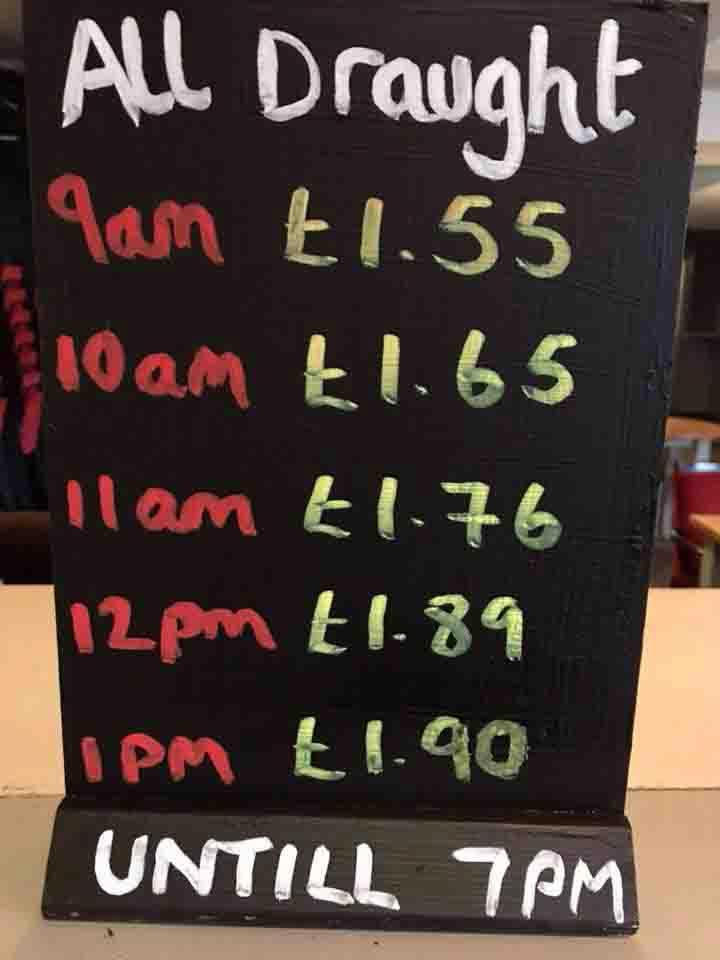 All Draught
9am £1.55
10am £1.65
11am £1.76
12pm £1.89
1PM £1.90
UNTILL 7PM